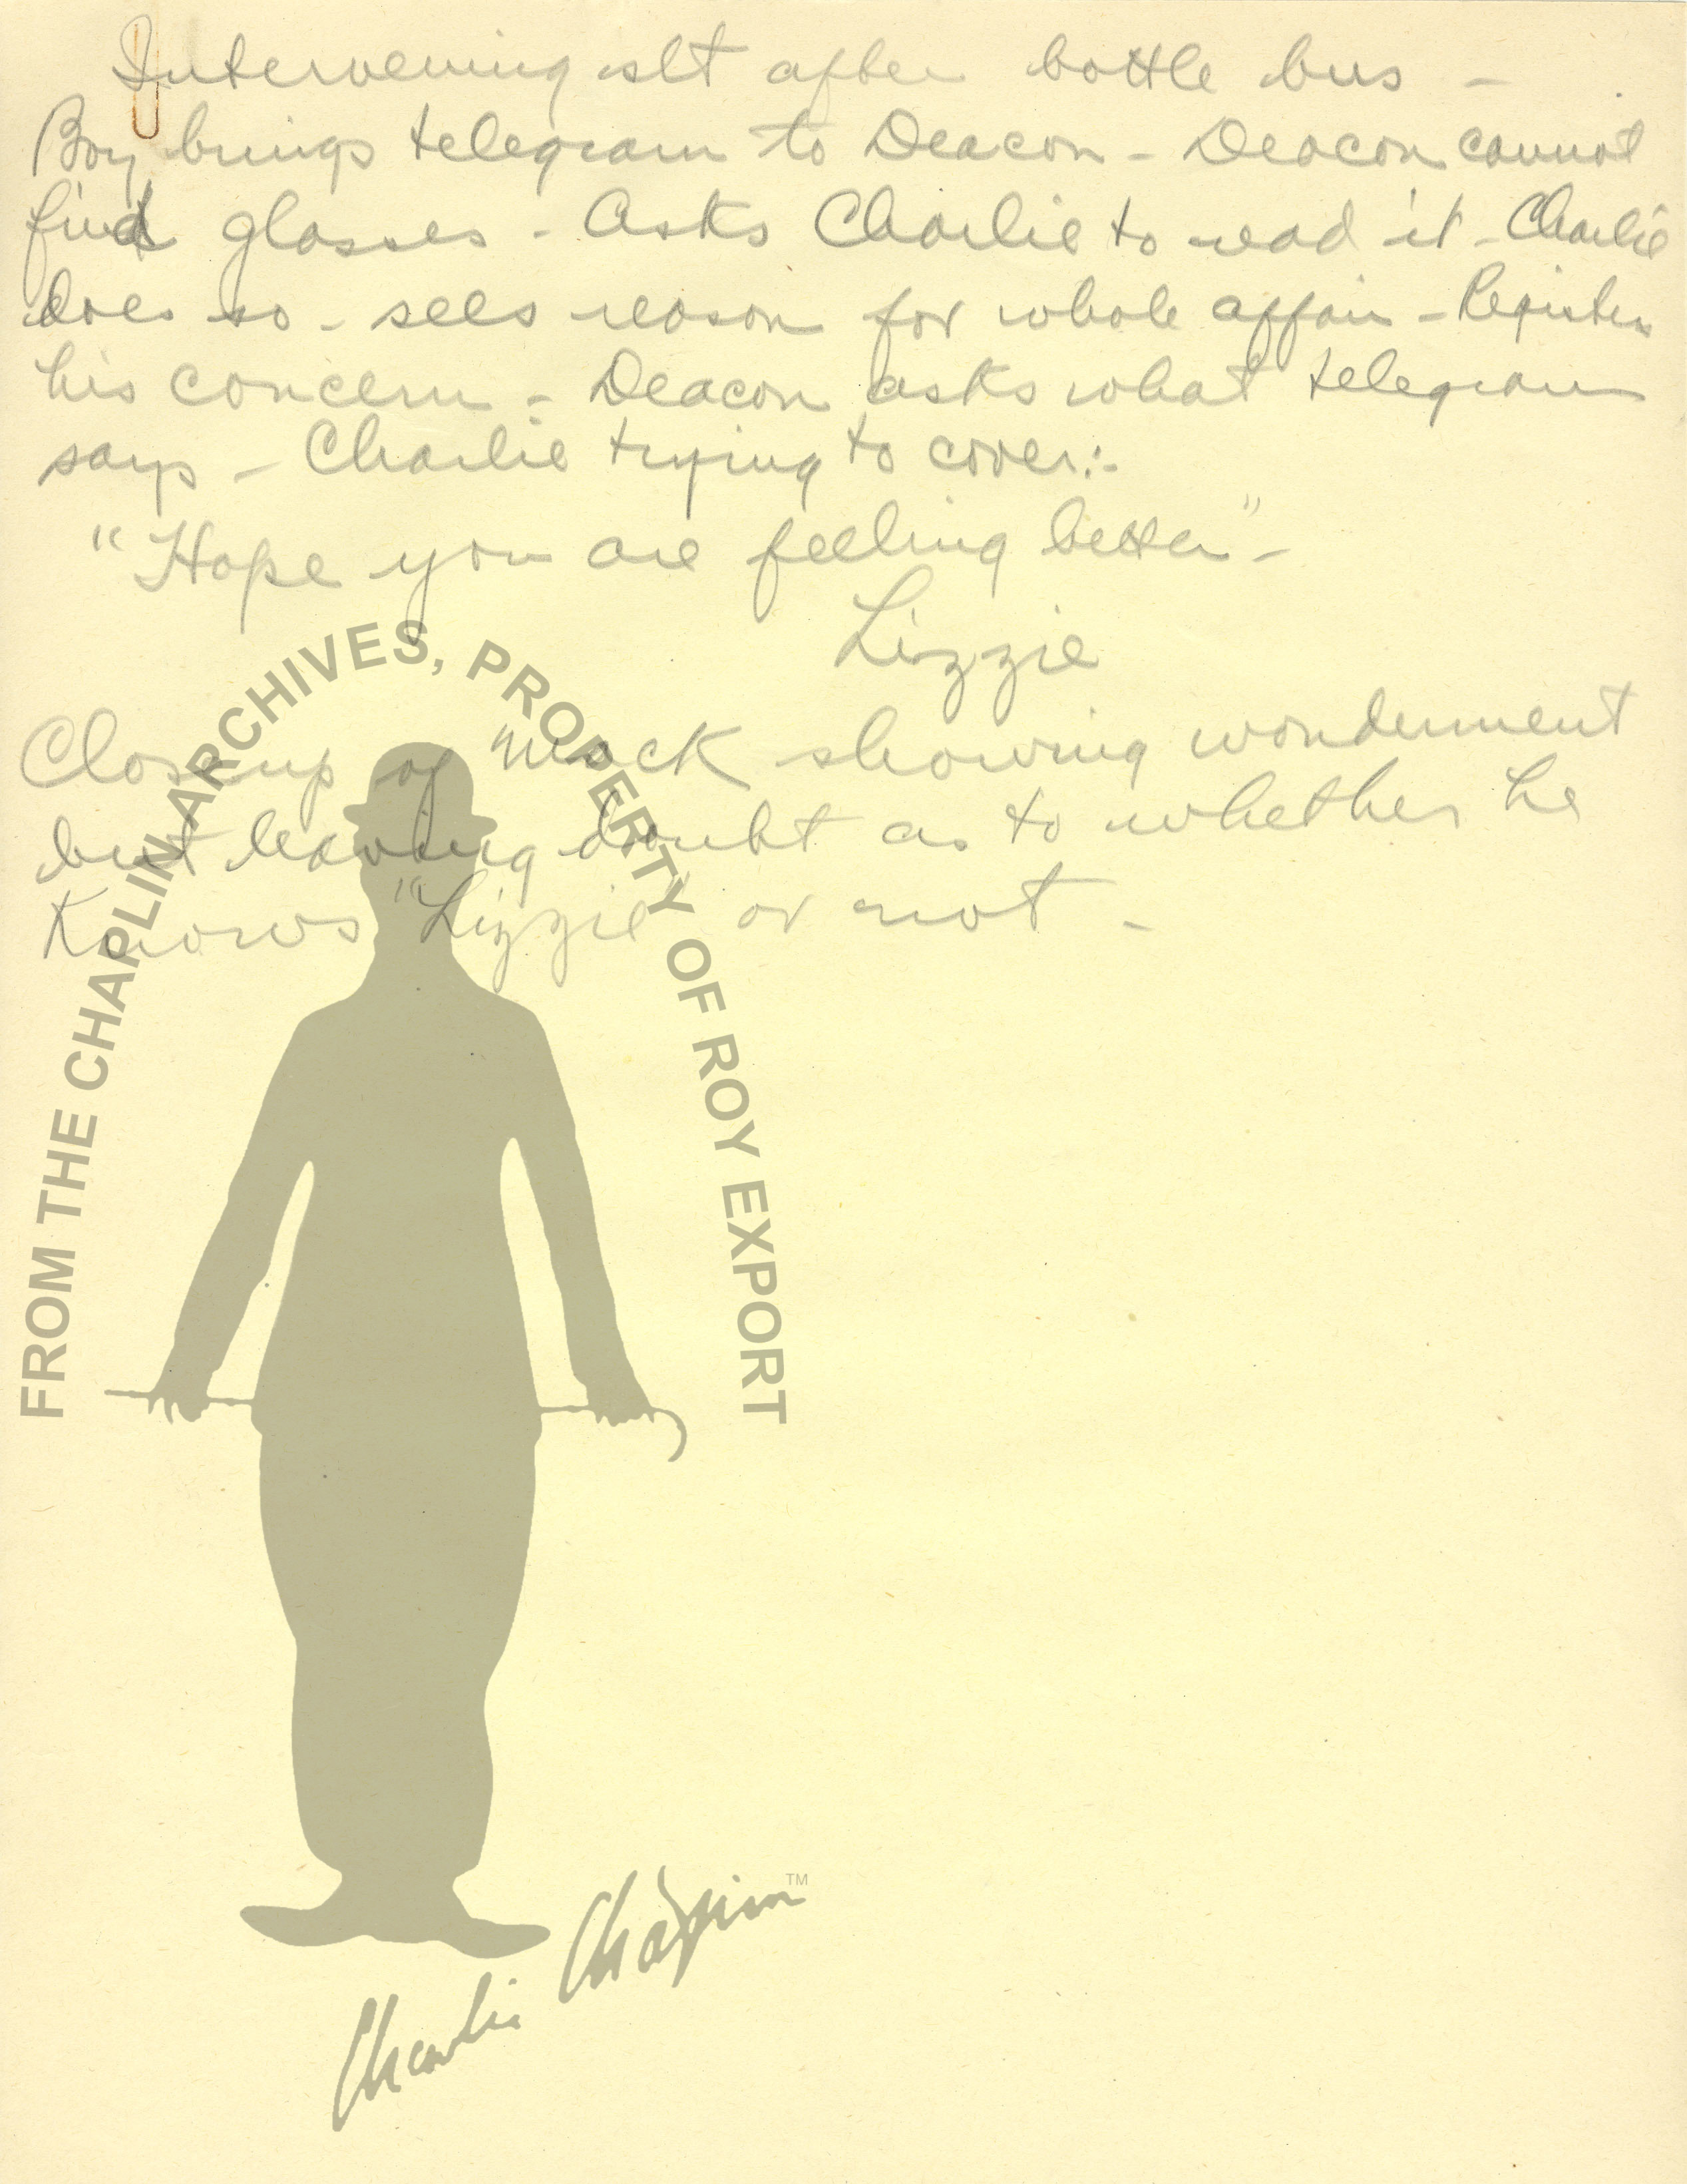 Intervening slt after bottle bus -
Boy brings telegram to Deacon - Deacon cannot
find glasses - Asks Charlie to read it - Charlie
does so - sees reason for whole affair - Registers
his concern - Deacon asks what telegram
says - Charlie trying to cover:-
"Hope you are feeling better" -
Lizzie
Closeup of Mack showing wonderment
but leaving doubt as to whether he
knows "Lizzie" or not -
FROM THE CHAPLIN ARCHIVES, PROPERTY OF ROY EXPORT
Charlie Chaplin TM